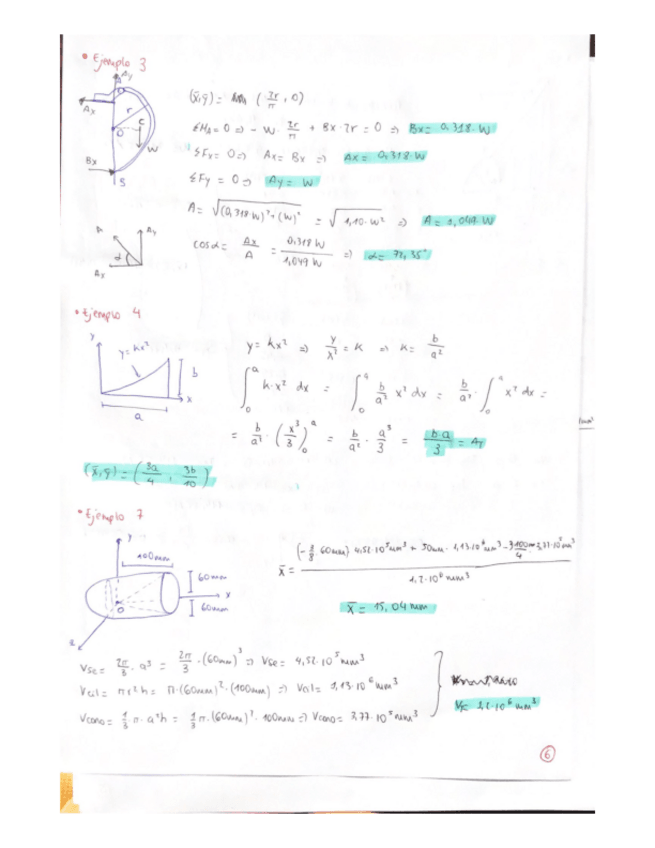 • Ejemplo 3
Ay
A
Ax
r
O
C
W
Bx
B
(x̄,ȳ) = ( 2r/π , 0)
ΣMA = 0 => - W · 2r/π + Bx · 2r = 0 => Bx = 0,318 · W
ΣFx = 0 => Ax = Bx => Ax = 0,318 · W
ΣFy = 0 => Ay = W
A = √((0,318 W)² + (W)²) = √(1,10 · W²) => A = 1,049 · W
A
Ay
α
Ax
cos α = Ax/A = 0,318 W / 1,049 W => α = 72,35°
• Ejemplo 4
y
y = kx²
b
x
a
y = kx² => y/x² = k => k = b/a²
∫₀ᵃ k·x² dx = ∫₀ᵃ b/a² x² dx = b/a² · ∫₀ᵃ x² dx =
= b/a² · (x³/3)₀ᵃ = b/a² · a³/3 = b·a/3 = AT
(x̄,ȳ) = (3a/4 , 3b/10)
• Ejemplo 7
y
100mm
60mm
x
O
60mm
z
x̄ = ((-3/8 60mm) · 4,52·10⁵mm³ + 50mm · 1,13·10⁶mm³ - 3·100mm/4 · 3,77·10⁵mm³) / 1,2·10⁶mm³
x̄ = 15,04 mm
Vse = 2π/3 · a³ = 2π/3 · (60mm)³ => Vse = 4,52·10⁵mm³
Vcil = πr²h = π·(60mm)²·(100mm) => Vcil = 1,13·10⁶mm³
Vcono = 1/3 π·a²h = 1/3 π·(60mm)²·100mm => Vcono = 3,77·10⁵mm³
VT = 1,2·10⁶mm³
6